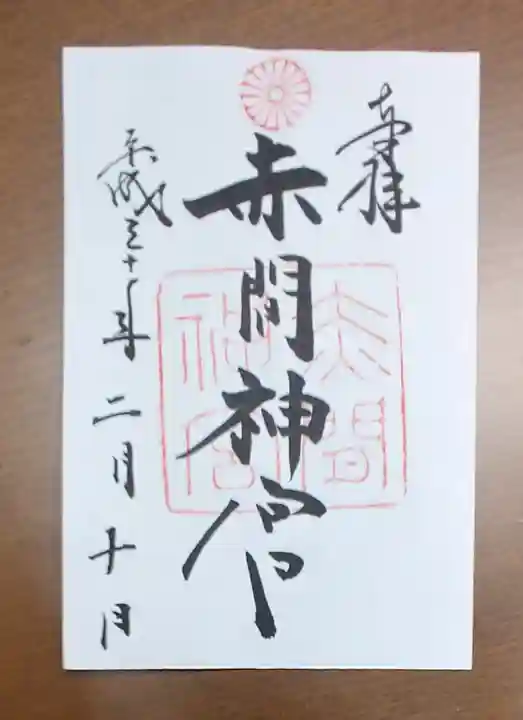 奉拝
赤間神宮
赤間神宮
平成三十年二月十日